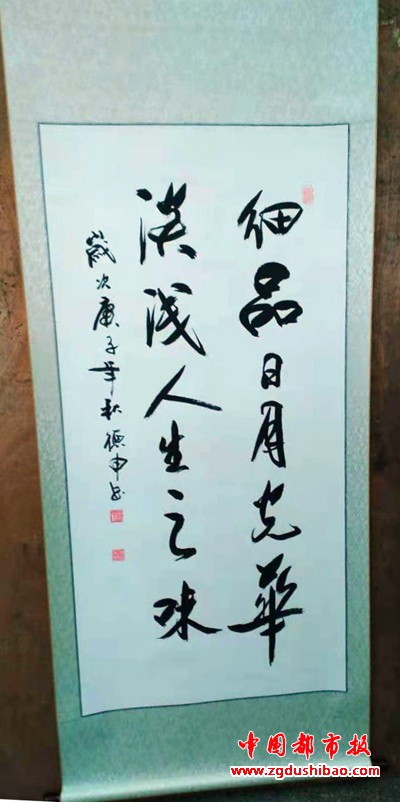 细品日月光华
淡浅人生之味
歲次庚子年秋德申书
中国都市报
www.zgdushibao.com